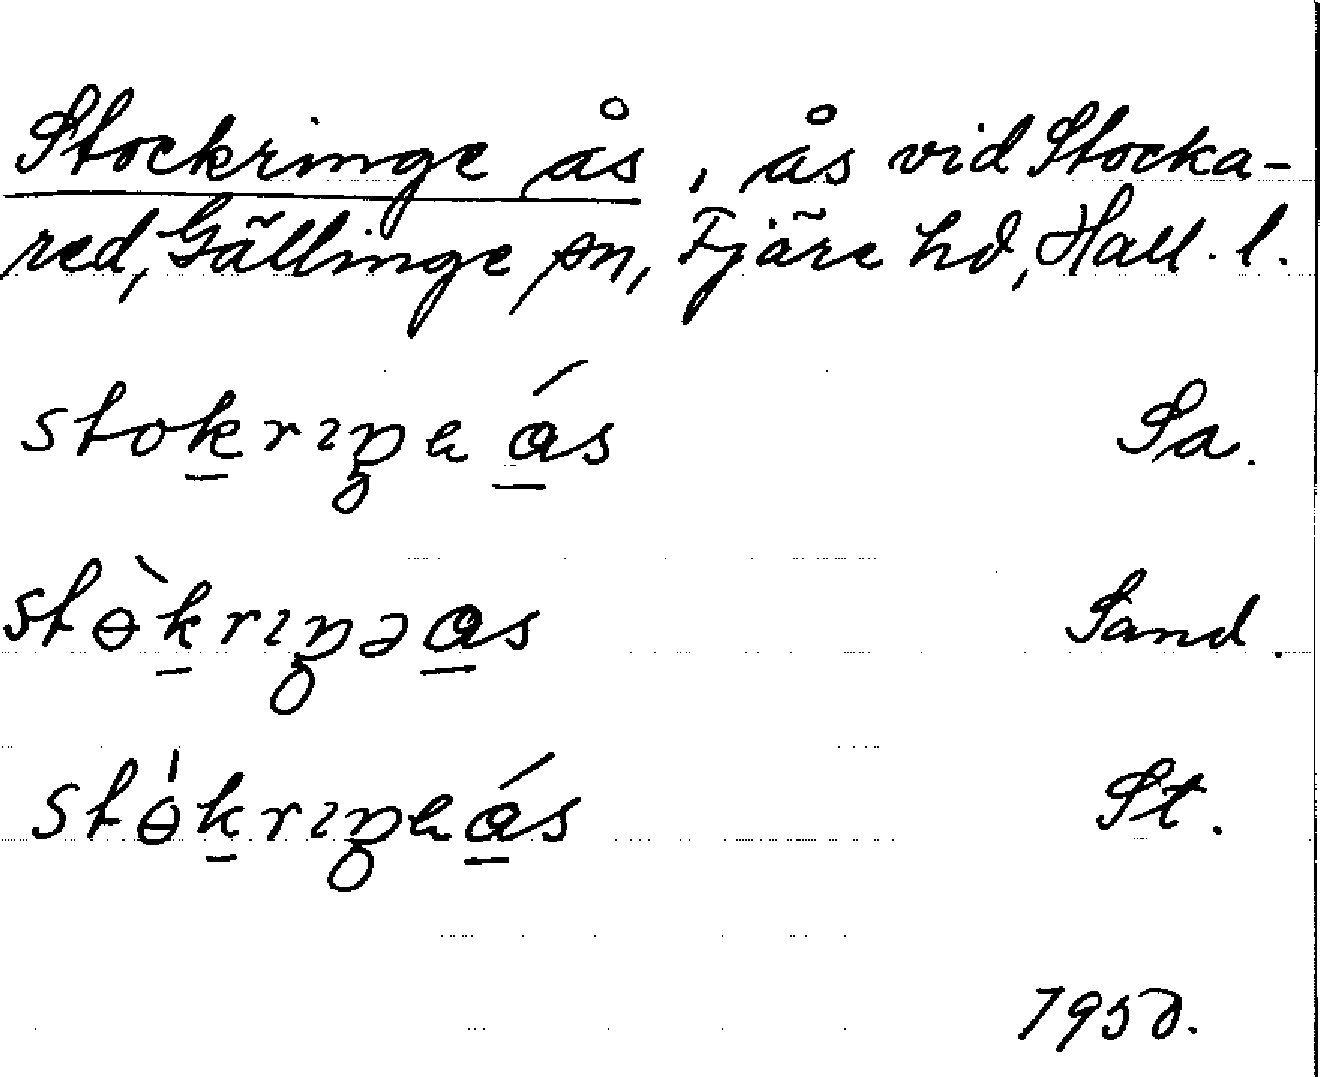 Stockringe ås, ås vid Stocka-
red, Gällinge sn, Fjäre hd, Hall. l.
stok̲rıŋe á̲s Sa.
stɵ̀k̲rıŋəa̲s Sand.
stɵ̍k̲rıŋeá̲s St.
1950.